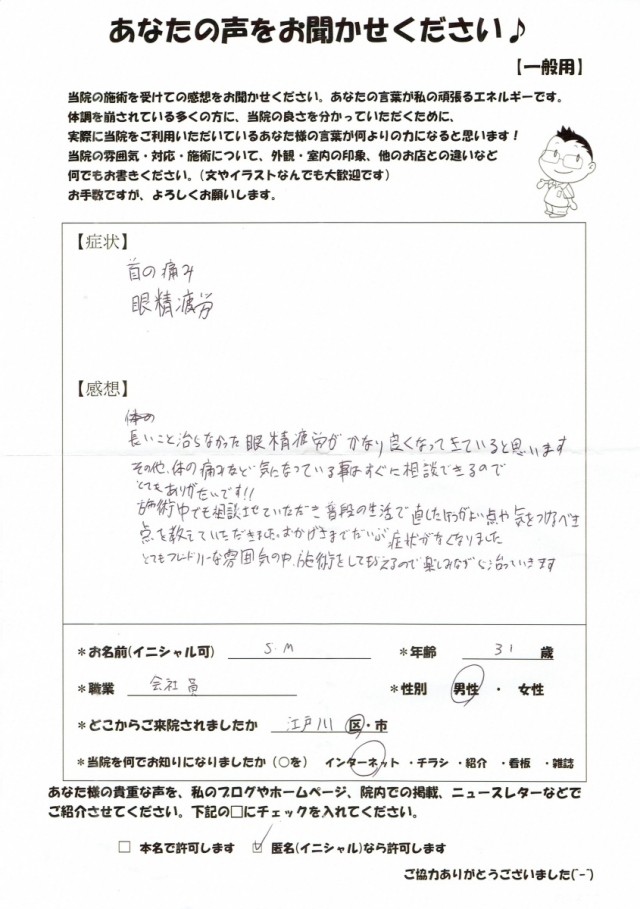 あなたの声をお聞かせください♪
【一般用】
当院の施術を受けての感想をお聞かせください。あなたの言葉が私の頑張るエネルギーです。
体調を崩されている多くの方に、当院の良さを分かっていただくために、
実際に当院をご利用いただいているあなた様の言葉が何よりの力になると思います！
当院の雰囲気・対応・施術について、外観・室内の印象、他のお店との違いなど
何でもお書きください。(文やイラストなんでも大歓迎です)
お手数ですが、よろしくお願いします。
【症状】
首の痛み
眼精疲労
【感想】
長いこと治らなかった眼精疲労がかなり良くなってきていると思います
その他、体の痛みなど気になっている事はすぐに相談できるので
とてもありがたいです!!
施術中でも相談させていただき普段の生活で直したほうがよい点や気をつけるべき
点を教えていただきました。おかげさまでだいぶ症状がなくなりました
とてもフレンドリーな雰囲気の中、施術をしてもらえるので楽しみながら治っていきます
*お名前(イニシャル可) S.M *年齢 31 歳
*職業 会社員 *性別 男性・女性
*どこからご来院されましたか 江戸川 区・市
*当院を何でお知りになりましたか (○を) インターネット・チラシ・紹介・看板・雑誌
あなた様の貴重な声を、私のブログやホームページ、院内での掲載、ニュースレターなどで
ご紹介させてください。下記の□にチェックを入れてください。
□ 本名で許可します ☑ 匿名(イニシャル)なら許可します
ご協力ありがとうございました(^-^)